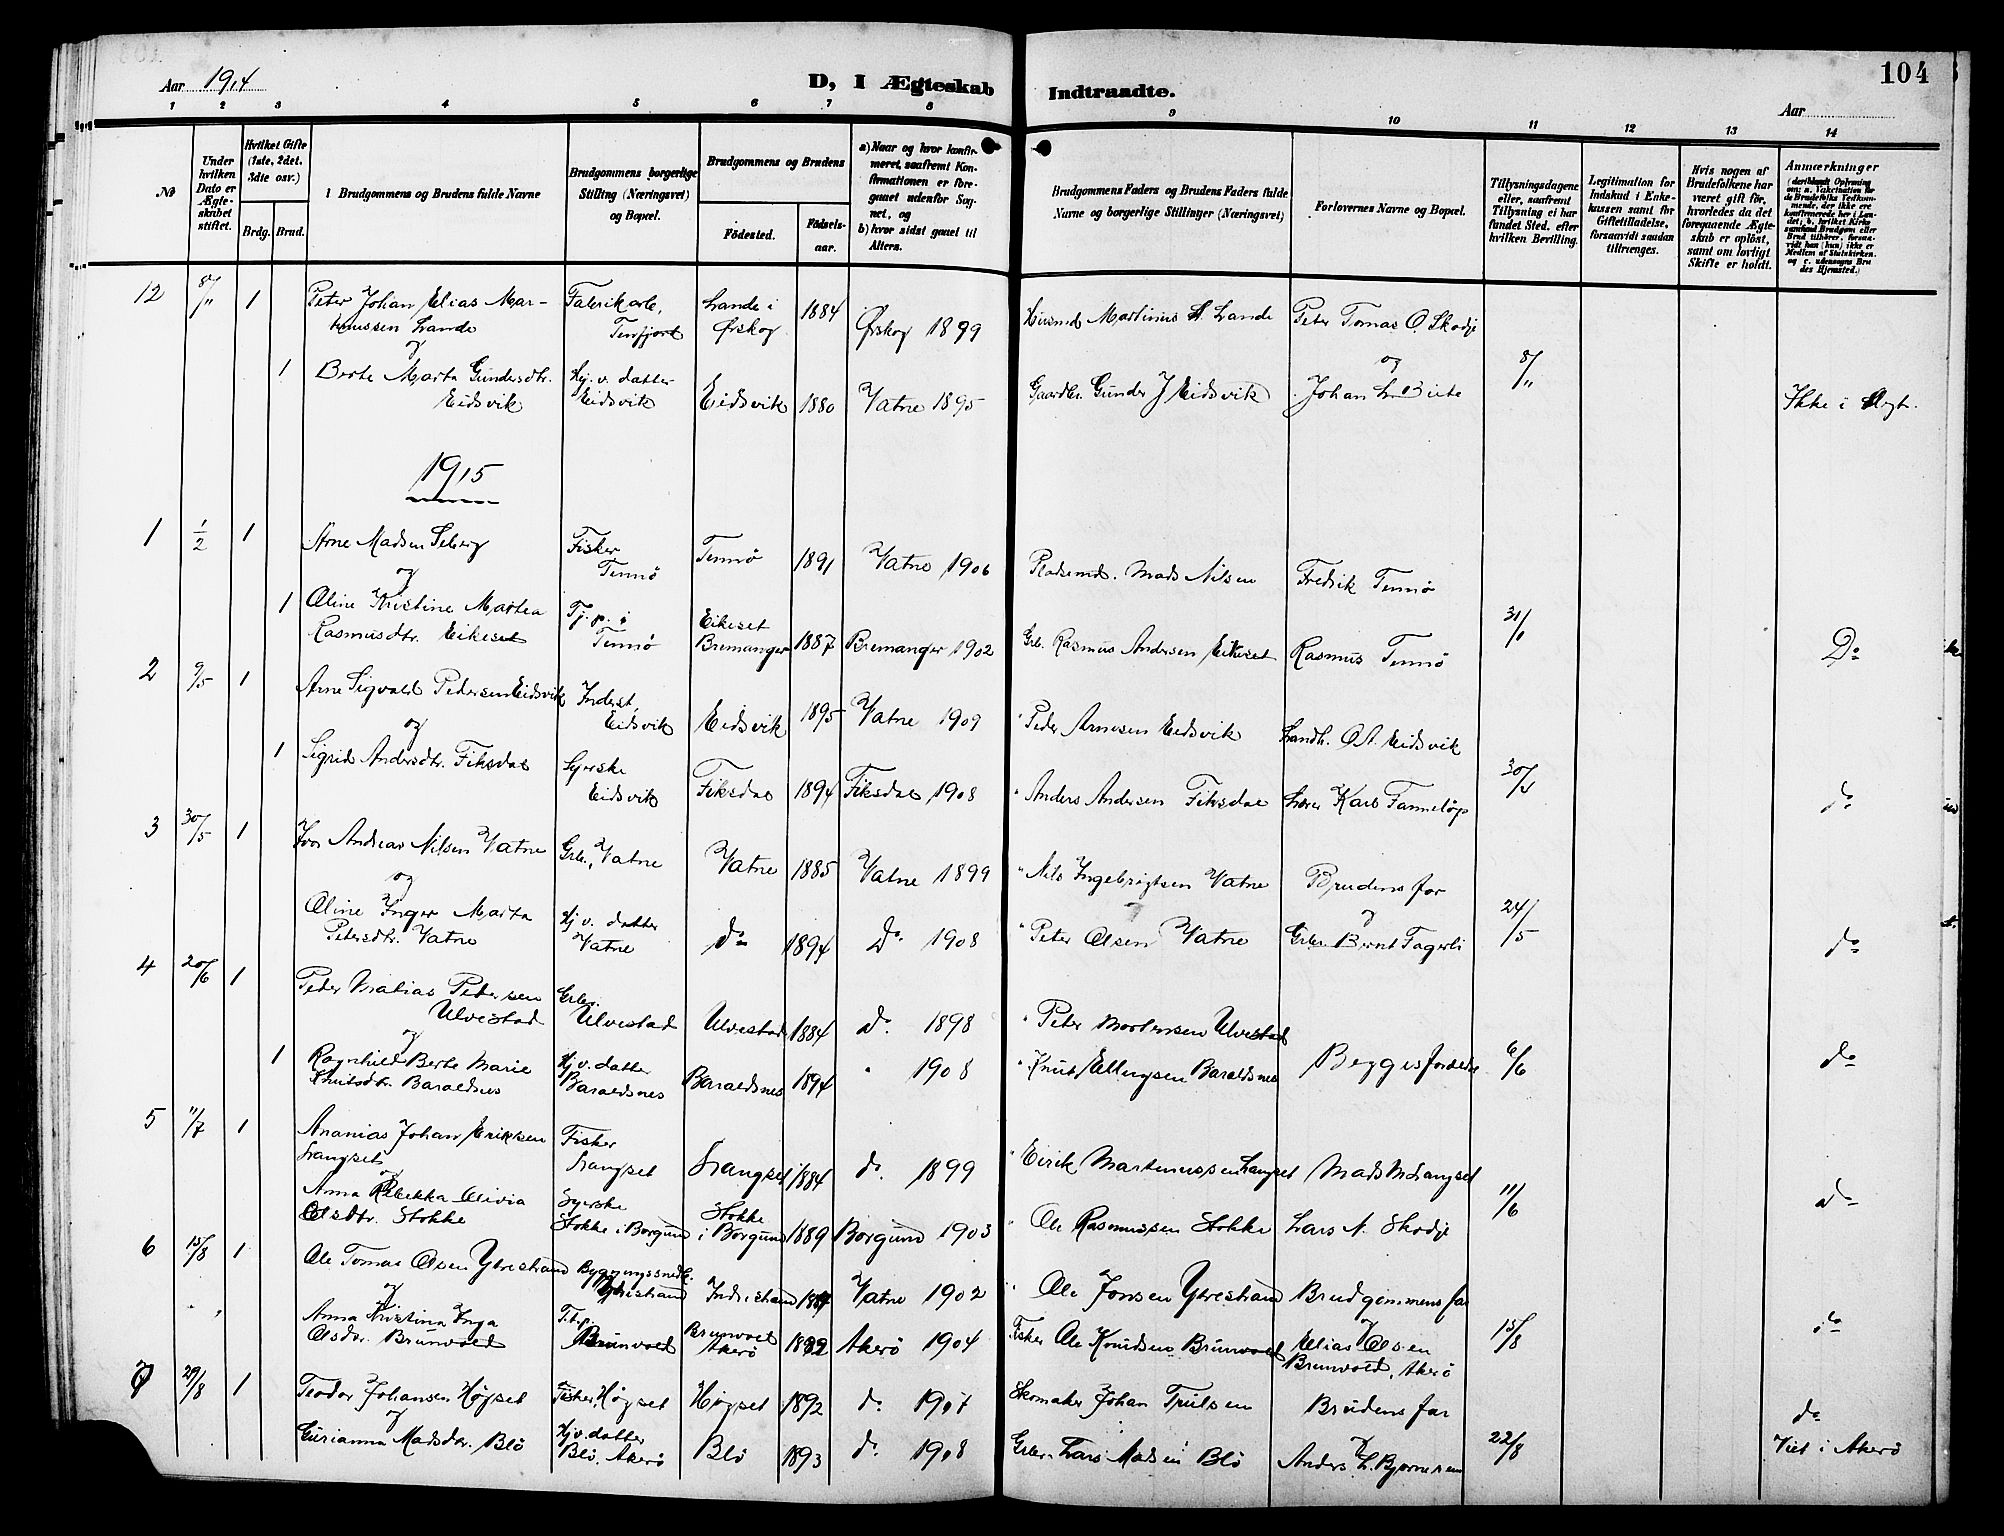 104
Aar 1914
D, I Ægteskab Indtraadte.
Aar
1 2 3 4 5 6 7 8 9 10 11 12 13 14
№
Under hvilken Dato er Ægteskabet stiftet.
Hvilket Gifte (1ste, 2det, 3die osv.)
Brdg. Brud.
Brudgommens og Brudens fulde Navne
Brudgommens borgerlige Stilling (Næringsvei) og Bopæl.
Brudgommens og Brudens
Fødested. Fødselsaar.
a) Naar og hvor konfirmeret, saafremt Konfirmationen er foregaaet udenfor Sognet, og
b) hvor sidst gaaet til Alters.
Brudgommens Faders og Brudens Faders fulde Navne og borgerlige Stillinger (Næringsvei)
Forlovernes Navne og Bopæl.
Tillysningsdagene eller, saafremt Tillysning ei har fundet Sted, efter hvilken Bevilling.
Legitimation for Indskud i Enkekassen samt for Giftetilladelse, forsaavidt saadan tiltrænges.
Hvis nogen af Brudefolkene har været gift før, hvorledes da det foregaaende Ægteskab er opløst, samt om lovligt Skifte er holdt.
Anmærkninger
12 8/11 1 Peter Johan Elias Mar- Fabrikarb, Lande i 1884 Ørskog 1899 Husmd Martinus A. Lande Peter Tomas O. Skodje
tinussen Lande Tenfjord Ørskog
og og 8/11
1 Berte Marta Gundersdtr. Hj. v. datter Eidsvik 1880 Vatne 1895 Gaardbr. Gunder J Eidsvik Johan L. Ikke i Slegt.
Eidsvik Eidsvik
1915
1 1/2 1 Arne Madsen Seberg Fisker Tennø 1891 Vatne 1906 Pladsmd. Mads Nilsen Fredrik Tennø
og Tennø
1 Oline Kristine Martea Tj. p. i Eikeset 31/1
Rasmusdtr. Eikeset Tennø Bremanger 1887 Bremanger 1902 Grb. Rasmus Andersen Eikeset Rasmus Tennø Do
2 9/5 1 Arne Sigvald Pedersen Eidsvik Inderst, Eidsvik 1895 Vatne 1909 " Peder Arnesen Eidsvik Landh. O. A. Eidsvik
og Eidsvik
1 Sigrid Andersdtr. Fiksdal Syerske Fiksdal 1894 Fiksdal 1908 " Anders Andersen Fiksdal Lærer Karl 30/ do
Eidsvik
3 30/5 1 Ivar Andreas Nilsen Vatne Grbr, Vatne Vatne 1885 Vatne 1899 " Nils Ingebrigtsen Vatne Brudens far
og og
Oline Inger Marta Hj v. datter do 1894 Do 1908 " Peter Olsen Vatne Grbr. Bernt Fagerli 24/5 do
Petersdtr. Vatne Vatne
4 20/6 1 Peder Matias Pedersen Grbr. Ulvestad 1884 do 1898 " Peter Mortensen Ulvestad
Ulvestad Ulvestad
og
1 Ragnhild Berte Marie Hj v. datter Baraldsnes 1894 " 1908 " Knut Ellingsen Baraldsnes Begges forældre 6/6 do
Knutsdtr. Baraldsnes Baraldsnes
5 11/7 1 Ananias Johan Eriksen Fisker Langset 1884 do 1899 " Eirik Martinussen Langset Mads M Langset
Langset Langset
og
Anna Rebekka Olivia Syerske Stokke 11/6 do
Olsdtr. Stokke Stokke i Borgund i Borgund 1889 Borgund 1903 " Ole Rasmussen Stokke Lars N. Skodje
6 15/8 1 Ole Tomas Olsen Ytrestrand Bygningssnedk. Indrestrand Vatne 1902 " Ole Jonsen Ytrestrand Brudgommens far
og Ytrestrand og
Anna Kristina Inga Brunvold Akerø 1904 Fisker Ole Knudsen Brunvold Elias Olsen 15/8 do
Olsdtr. Brunvold Brunvold Akerø Brunvold, Akerø
7 29/8 1 Teodor Johansen Høgset Fisker, Høgset Høgset 1892 do 1907 Skomaker Johan Trulsen Brudens far do
og og
Gurianna Madsdtr. Blø Hj v. datter Blø 1893 do 1908 Grbr. Lars Madsen Blø Anders L. Bjørnesem 22/8 Viet i Akerø
Blø, Akerø